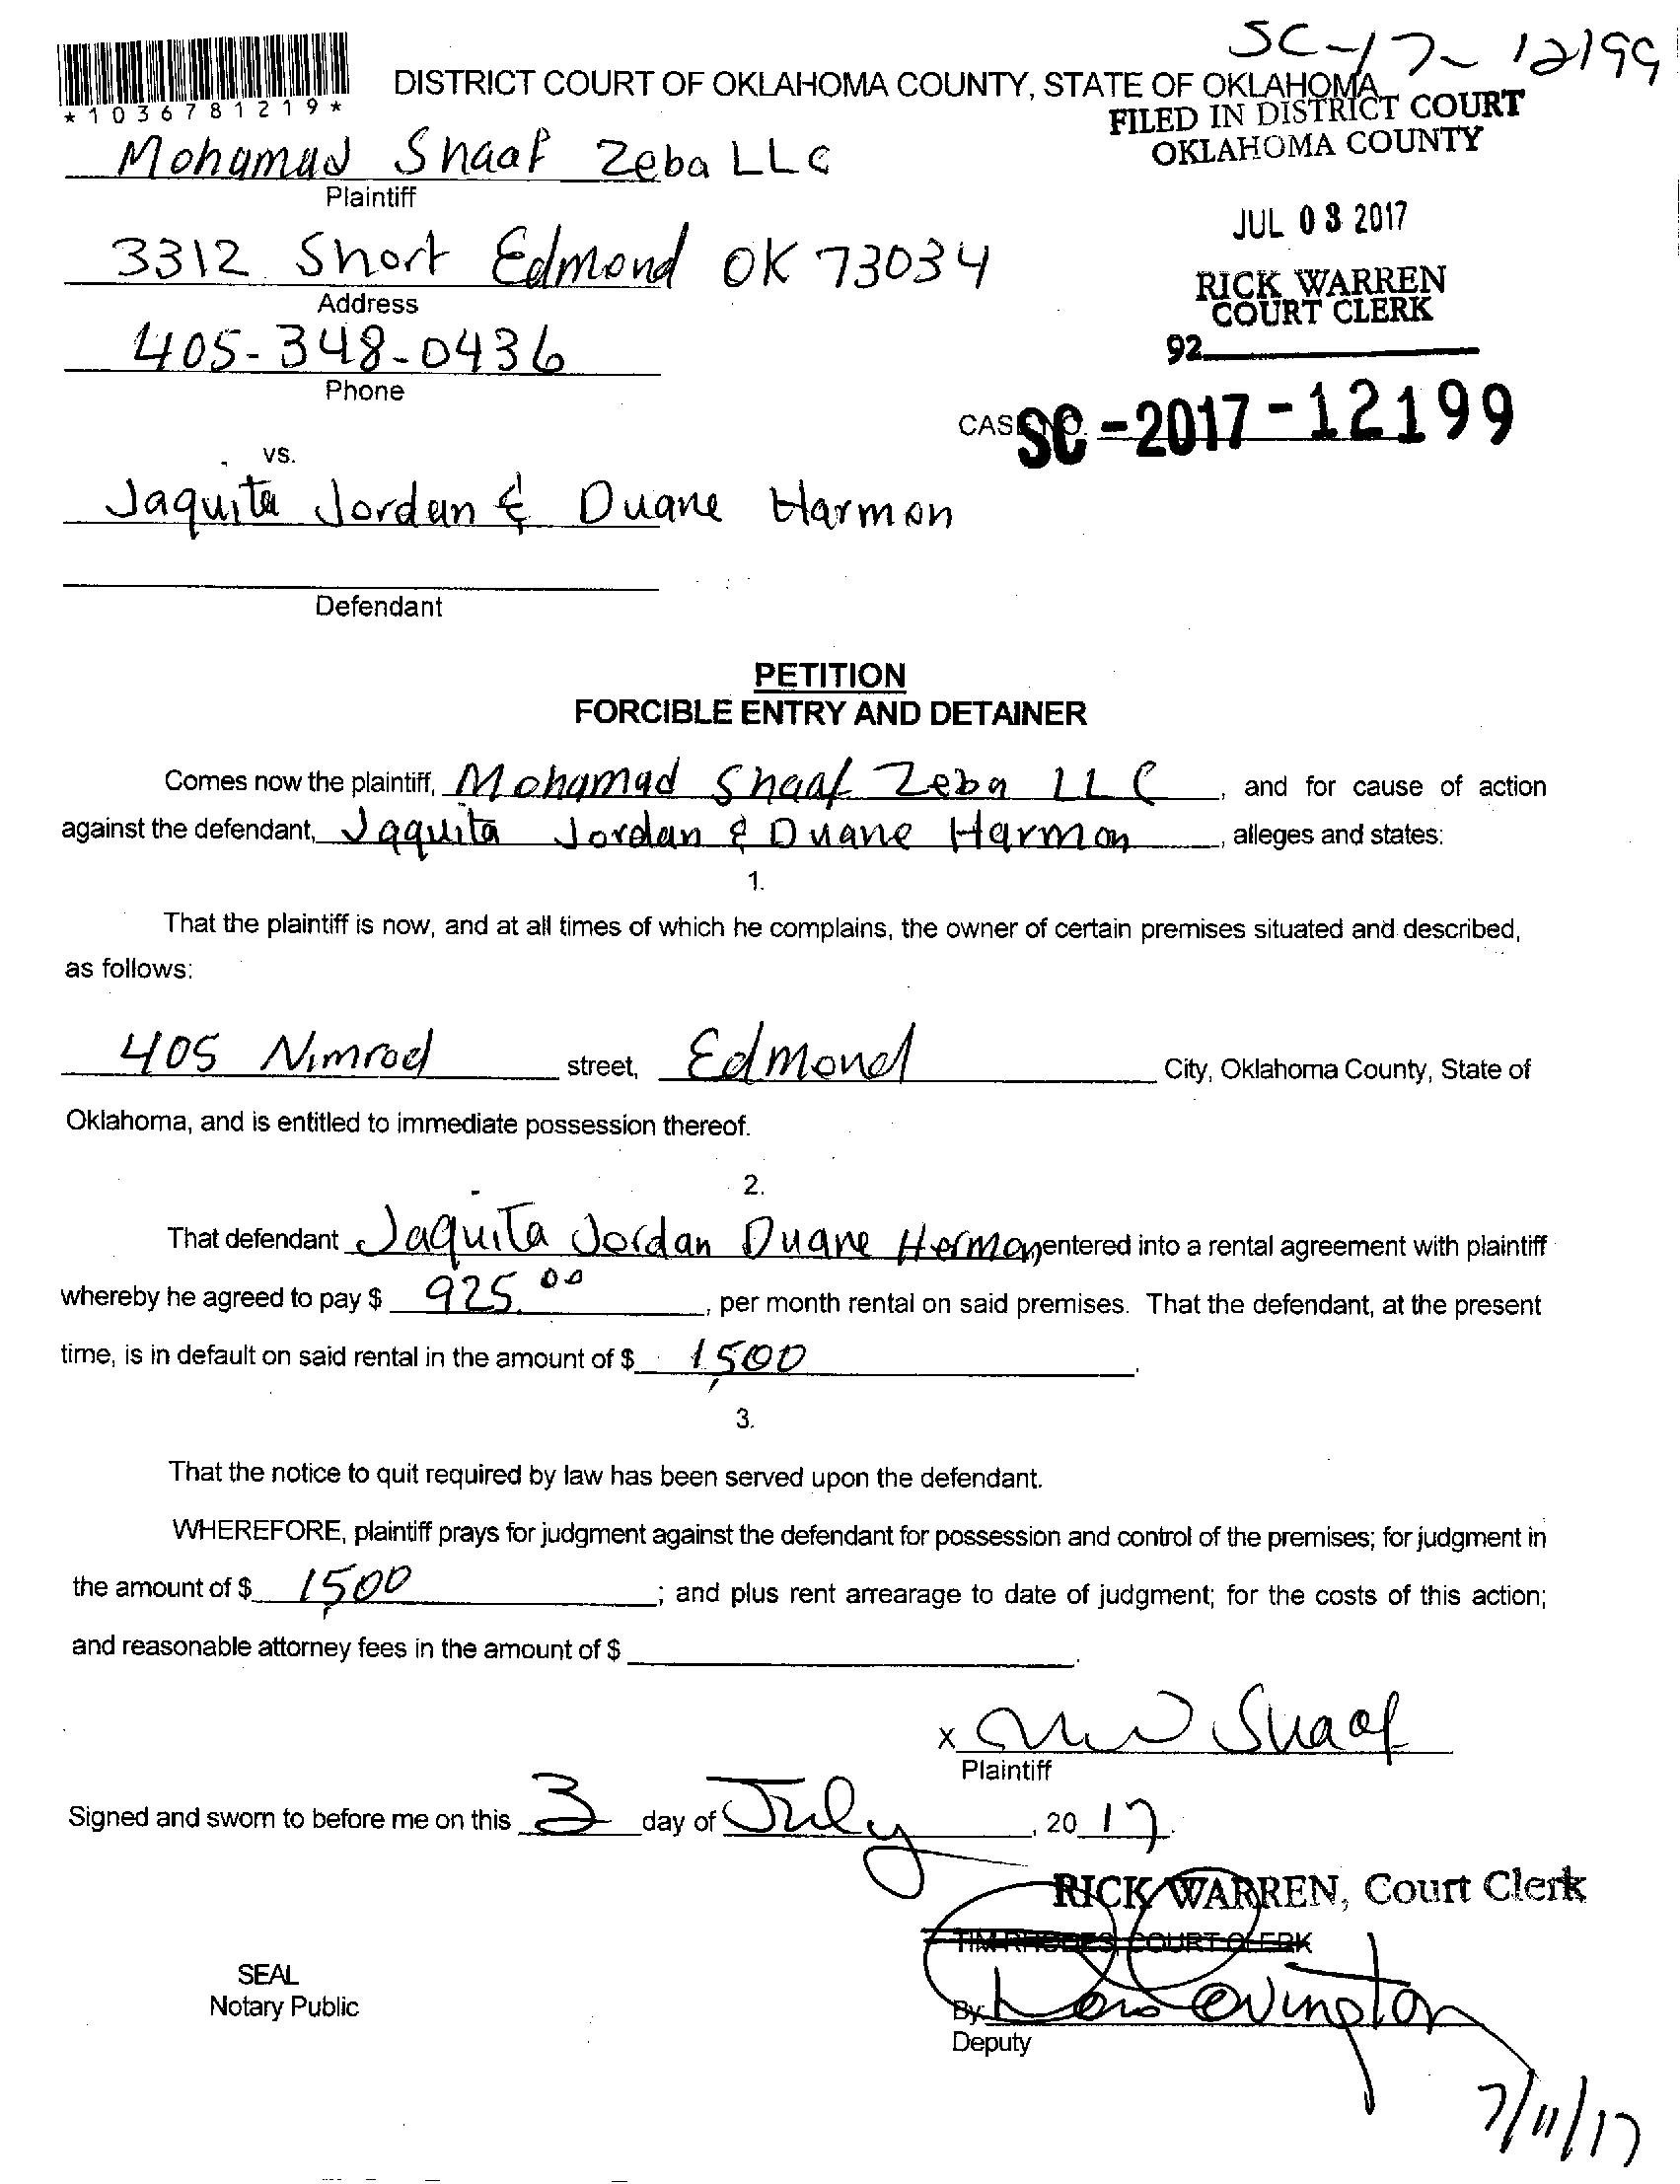 SC-17-12199
*1036781219*
DISTRICT COURT OF OKLAHOMA COUNTY, STATE OF OKLAHOMA
FILED IN DISTRICT COURT
OKLAHOMA COUNTY
Mohamad Shaaf Zeba LLC
Plaintiff
JUL 03 2017
3312 Short Edmond OK 73034
Address
RICK WARREN
COURT CLERK
405-348-0436
92
Phone
CASE NO. SC-2017-12199
vs.
Jaquita Jordan & Duane Harmon
Defendant
PETITION
FORCIBLE ENTRY AND DETAINER
Comes now the plaintiff, Mohamad Shaaf Zeba LLC, and for cause of action
against the defendant, Jaquita Jordan & Duane Harmon, alleges and states:
1.
That the plaintiff is now, and at all times of which he complains, the owner of certain premises situated and described,
as follows:
405 Nimrod street, Edmond City, Oklahoma County, State of
Oklahoma, and is entitled to immediate possession thereof.
2.
That defendant Jaquita Jordan Duane Harmon entered into a rental agreement with plaintiff
whereby he agreed to pay $ 925.00, per month rental on said premises. That the defendant, at the present
time, is in default on said rental in the amount of $ 1,500.
3.
That the notice to quit required by law has been served upon the defendant.
WHEREFORE, plaintiff prays for judgment against the defendant for possession and control of the premises; for judgment in
the amount of $ 1,500; and plus rent arrearage to date of judgment; for the costs of this action;
and reasonable attorney fees in the amount of $ .
x Shaaf
Plaintiff
Signed and sworn to before me on this 3 day of July, 20 17
RICK WARREN, Court Clerk
TIM RHODES, COURT CLERK
SEAL
Notary Public
By:
Deputy
7/11/17